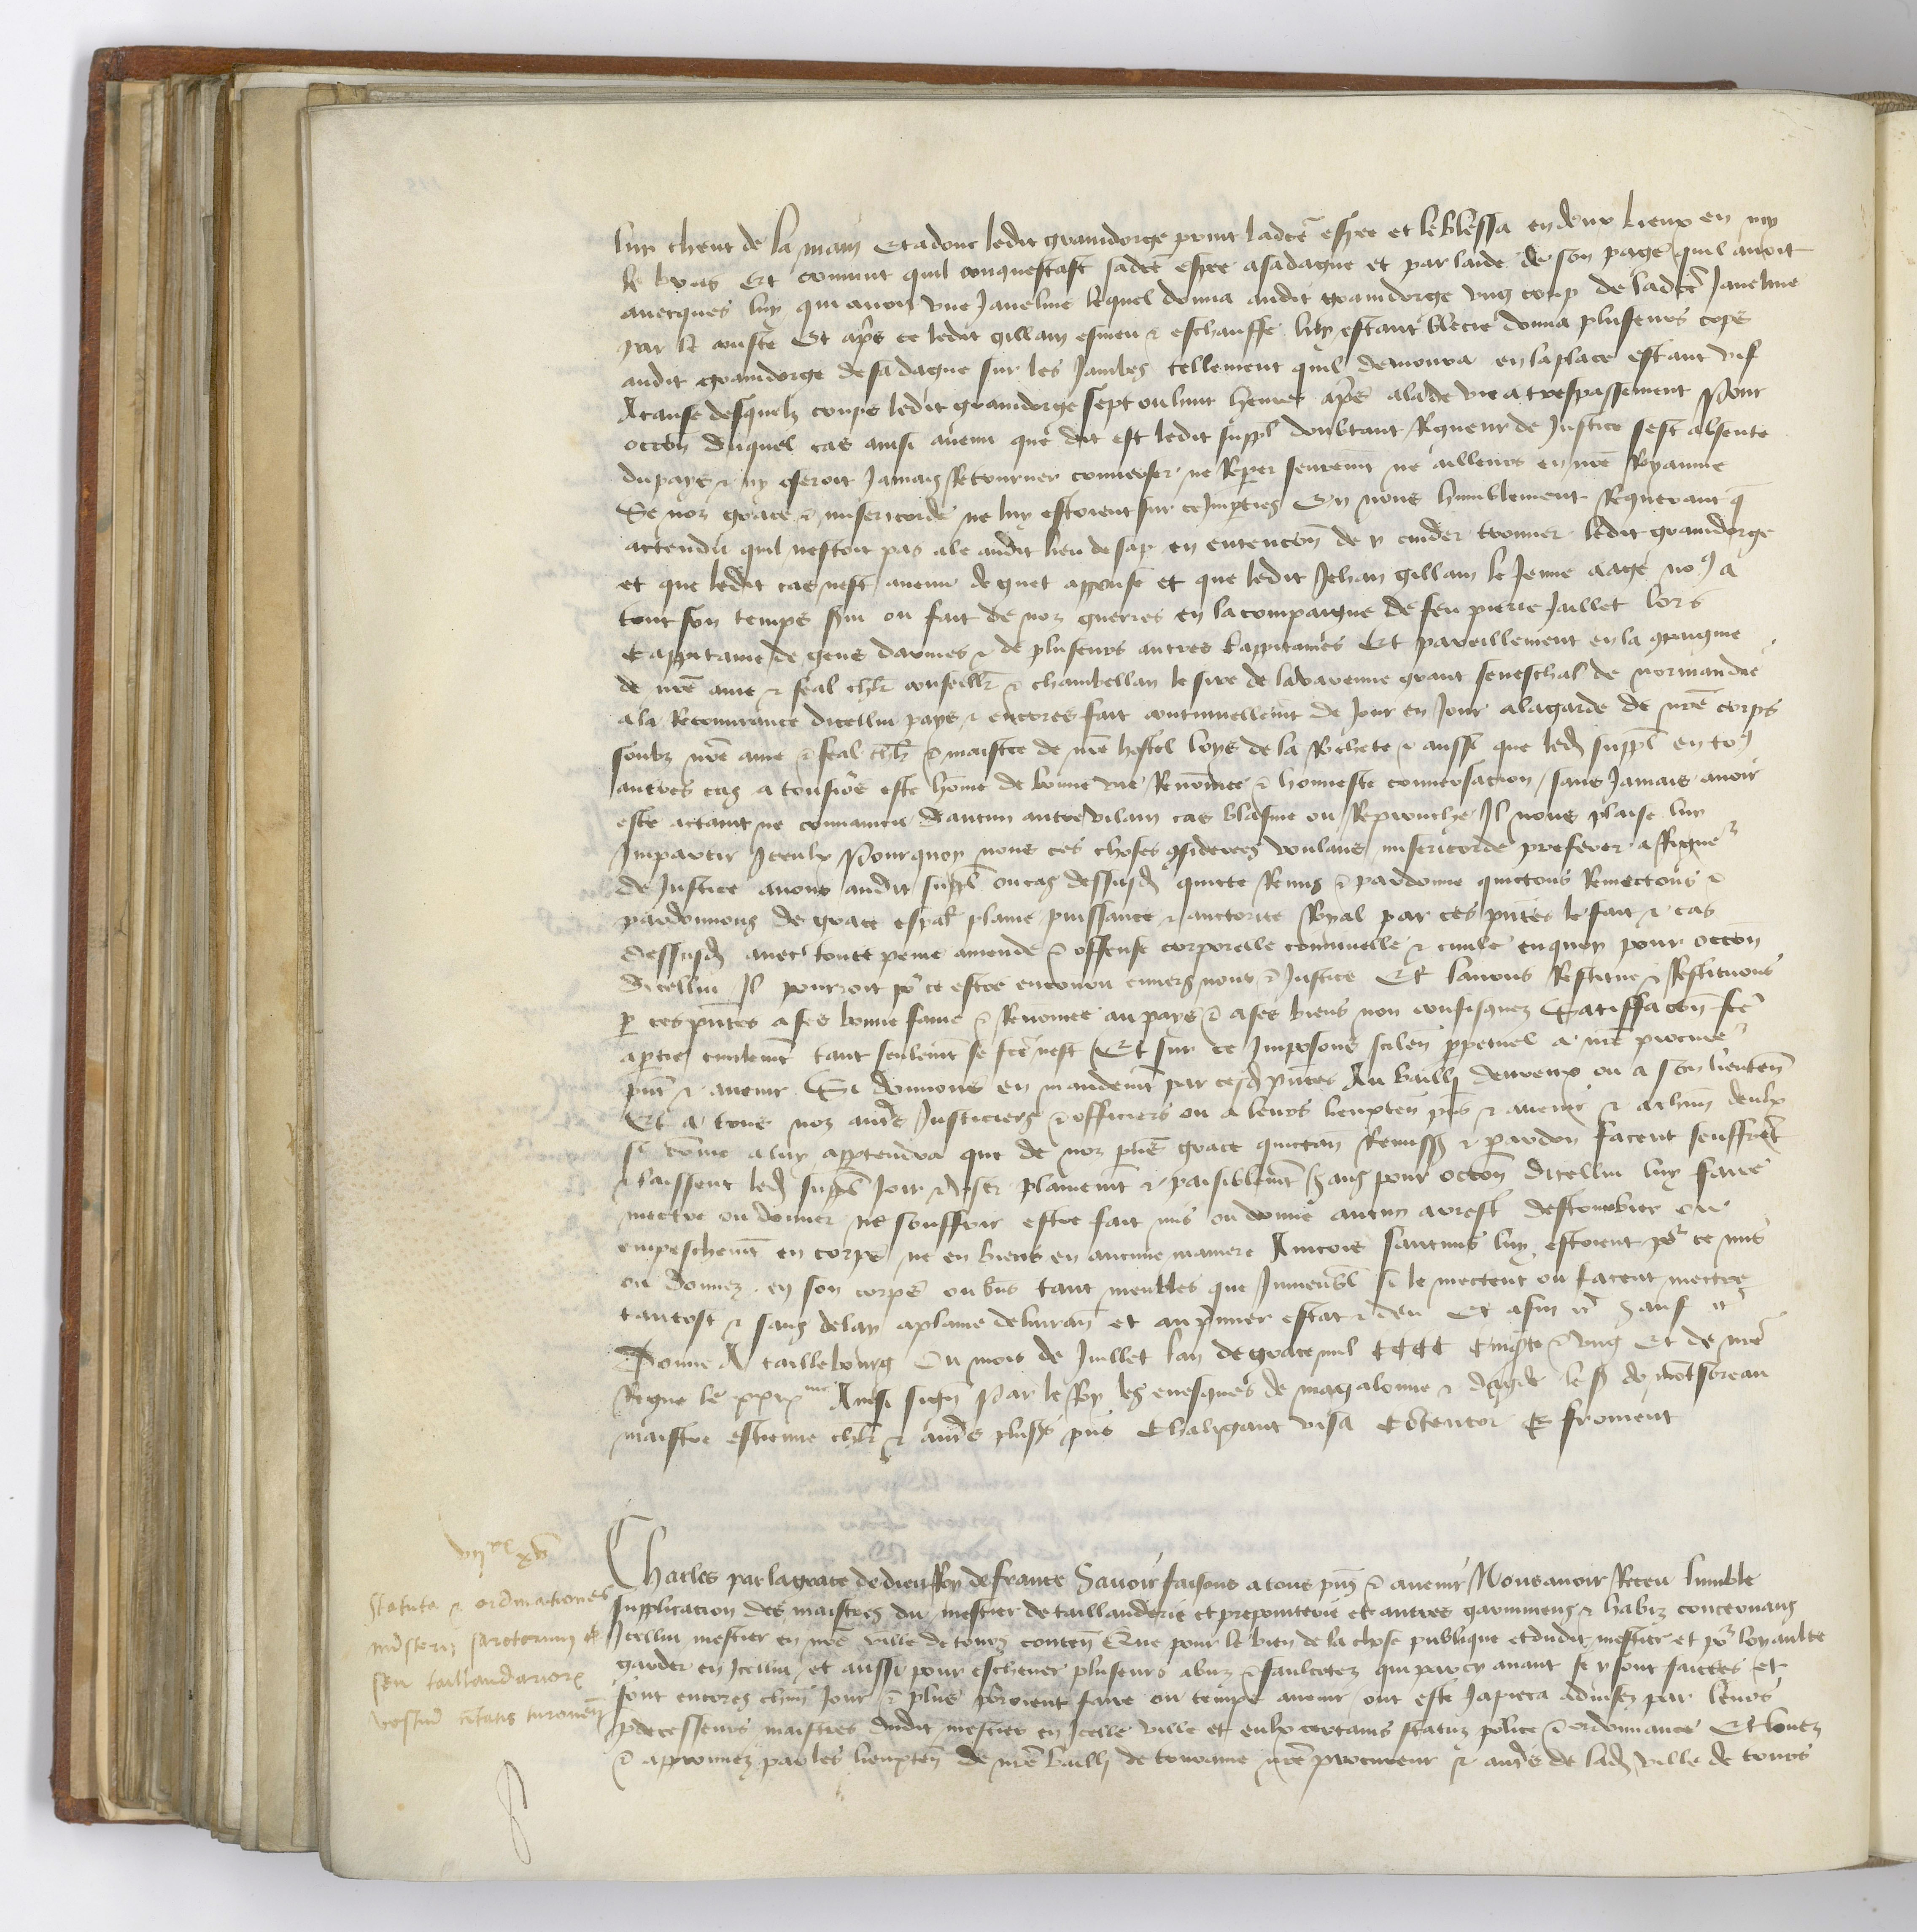 luy cheut de la main Et adonc ledit graindorge print ladcte espee et le blessa en deux lieux en
le bras Et convint quil conquestast sadcte espee a sa dague et par laide de son page quil avoit
avecques luy qui avoit une Javeline lequel donna audit graindorge ung coup de ladcte Javeline
par le couste Et apres ce ledit gillain esmeu & eschauffe luy estant blecie donna pluseurs cops
audit graindorge de sa dague sur les Jambes tellement quil demoura en la place estant vif
A cause desquelz coups ledit graindorge sept ou huit heures apres ala de vie a trespassement Pour
occon duquel cas ainsi avenu que dit est ledit suppl doubtant Rigueur de Justice sest absente
du pays & ny oseroit Jamais Retourner converser ne Reper seurement ne ailleurs en nre Royaume
Se noz grace & misericorde ne luy estoient sur ce Imparties En nous humblement Requerant q
attendu quil nestoit pas ale audit lieu de sap en entencon de y cuider trouver ledit graindorge
et que ledit cas nest avenu de guet appense et que ledit Jehan gillain le Jeune a
tout son temps servi ou fait de noz guerres en la compaignie de feu pierre Jaillet lors
Cappitaine de gens darmes & de pluseurs autres Cappitaines Et pareillement en la compaignie
de nre ame & feal chlr conseillr & chambellan le sire de la varenne grant seneschal de normandie
a la Recouvrance dicellui pays & encores fait continuellemt de Jour en Jour a la garde de nre corps
soubz nre ame & feal chlr & maistre de nre hostel loys de la Rochete & aussi que led suppl en to9
autres cas a tousiours este home de bonne vie Renomee & honneste conversacion sans Jamais avoir
este actaint ne convaincu daucun autre vilain cas blasme ou Reprouche Il nous plaise luy
Impartir Icculx Pourquoy nous ces choses 9siderees voulans misericorde preferer a Rigueur
de Justice avons audit suppl ou cas dessusd quicte Remis & pardonne quictons Remectons &
pardonnons de grace espal plaine puissance & auctorite Royal par ces pntes le fait & cas
dessusd avec toute peine amende & offense corporelle criminelle & civile en quoy pour occon
dicellui Il pourroit po ce estre encouru envers nous & Justice Et lavons Restitue & Restituons
p ces pntes a ses bonne fame & Renomee au pays & a ses biens non confisquez Satisfacon fce
a partie civilemt tant seulemt se fce nest Et sur ce Imposons silen perpetuel a nre procur
pnt & avenir Si donnons en mandemt par cesd pntes Au bailli devreux ou a son lieuten
Et a tous noz autrs Justiciers & officiers ou a leurs lieuxten pns & avenir & a chun deulx
si come a luy appartendra que de noz pnte grace quictan Remissi & pardon facent seuffret
& laissent led suppl Joir & user plainemt & paisiblemt sans pour occon dicellui luy faire
mectre ou donner ne souffrir estre fait mis ou donne aucun arrest destourbier ou
empeschemt en corps ne en biens en aucune maniere Aincois saucuns luy estoient po ce mis
ou donnez en son corps ou bns tant meubles que Immeubl si le mectent ou facent mectre
tantost & sans delay a plaine delivran et au prmier estat & deu Et afin etc Sauf etc
Donne A taillebourg Ou mois de Juillet lan de grace mil CCCC Cinqte & Ung Et de nre
Regne le xxixme Ainsi signe Par le Roy les evesques de magalonne & dagde le s de motsoreau
maistre estienne chlr & autrs plusrs pns Chaligaut visa Contentor E froment

viixx xv
Statuta & ordinationes
misterii sartorum
seu taillandarior
vestiu civitatis turonen

Charles par la grace de dieu Roy de france Savoir faisons a tous pns & avenir Nous avoir Receu lumble
supplicacion des maistres du mestier de taillanderie et prepointerie et autres garnimens & habiz concernans
Icellui mestier en nre ville de tours conten Que pour le bien de la chose publique et dudit mestier et po loyaulte
garder en Icellui et aussi pour eschever pluseurs abuz & faulcetez qui par cy avant se y sont faictes et
font encores chun Jour & plus pourroient faire ou temps avenir ont este Ja pieca advisez par leurs
pdecesseurs maistres dudit mestier en Icelle ville et eulx certains statuz police & ordonnance Et louez
& approuvez par les lieuxten de nre bailli de touraine nre procureur & autrs de lad ville de tours